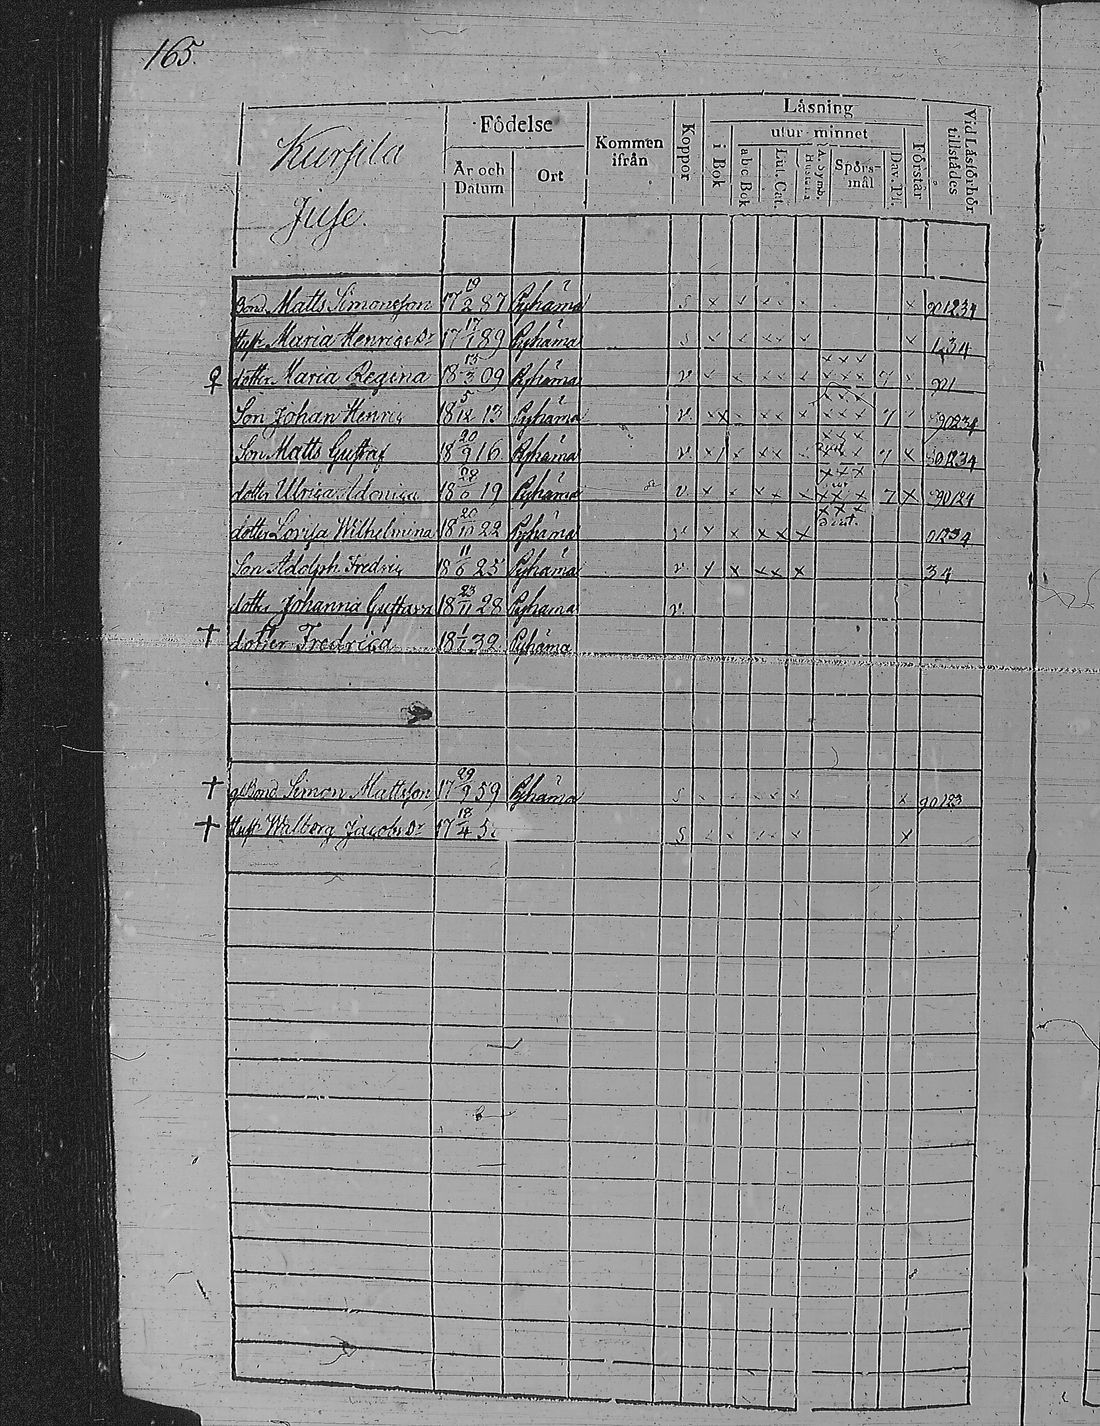 165.
Kursila
Juse.
Födelse
År och Datum
Ort
Kommen ifrån
Koppor
Läsning
i Bok
utur minnet
abc Bok
Lut. Cat.
A. Symb.
Hustafla
Spörs-mål
Dav. Ps.
Förstår
Vid Läsförhör tillstädes
Bond. Matts Simonsson 17 19/2 87 Pyhäma s x x x x x x 901234
Hust. Maria Henrics Dr 17 17/1 89 Pyhäma s x x x x x x 134
♀ dotter Maria Regina 18 13/3 09 Pyhäma v x x x x x x x x 7 x 901
Son Johan Henric 18 5/12 13 Pyhäma v x x x x x x x x 7 90234
Son Matts Gustaf 18 20/9 16 Pyhäma v x x x x x x x x 7 x 901234
dotter Ulrica 18 28/6 19 Pyhäma v x x x x x x x x 7 x 90124
dotter Lovisa Wilhelmina 18 20/10 22 Pyhäma v x x x x x x x x 01234
Son Adolph Fredric 18 11/6 25 Pyhäma v x x x x x 34
dotter Johanna Gustava 18 23/11 28 Pyhäma v
† dotter Fredrica 18 1/1 32 Pyhäma
† gl Bond Simon Mattsson 17 29/9 59 Pyhäma s x x x x x x 90123
† Hust. Walborg Jacobs Dr 17 18/4 5 s x x x x x x